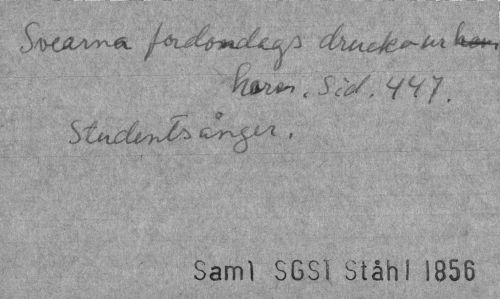 Svearna fordomdags drucko ur horn
horn. Sid. 447.
Studentsånger.
Saml SGS1 Ståhl 1856